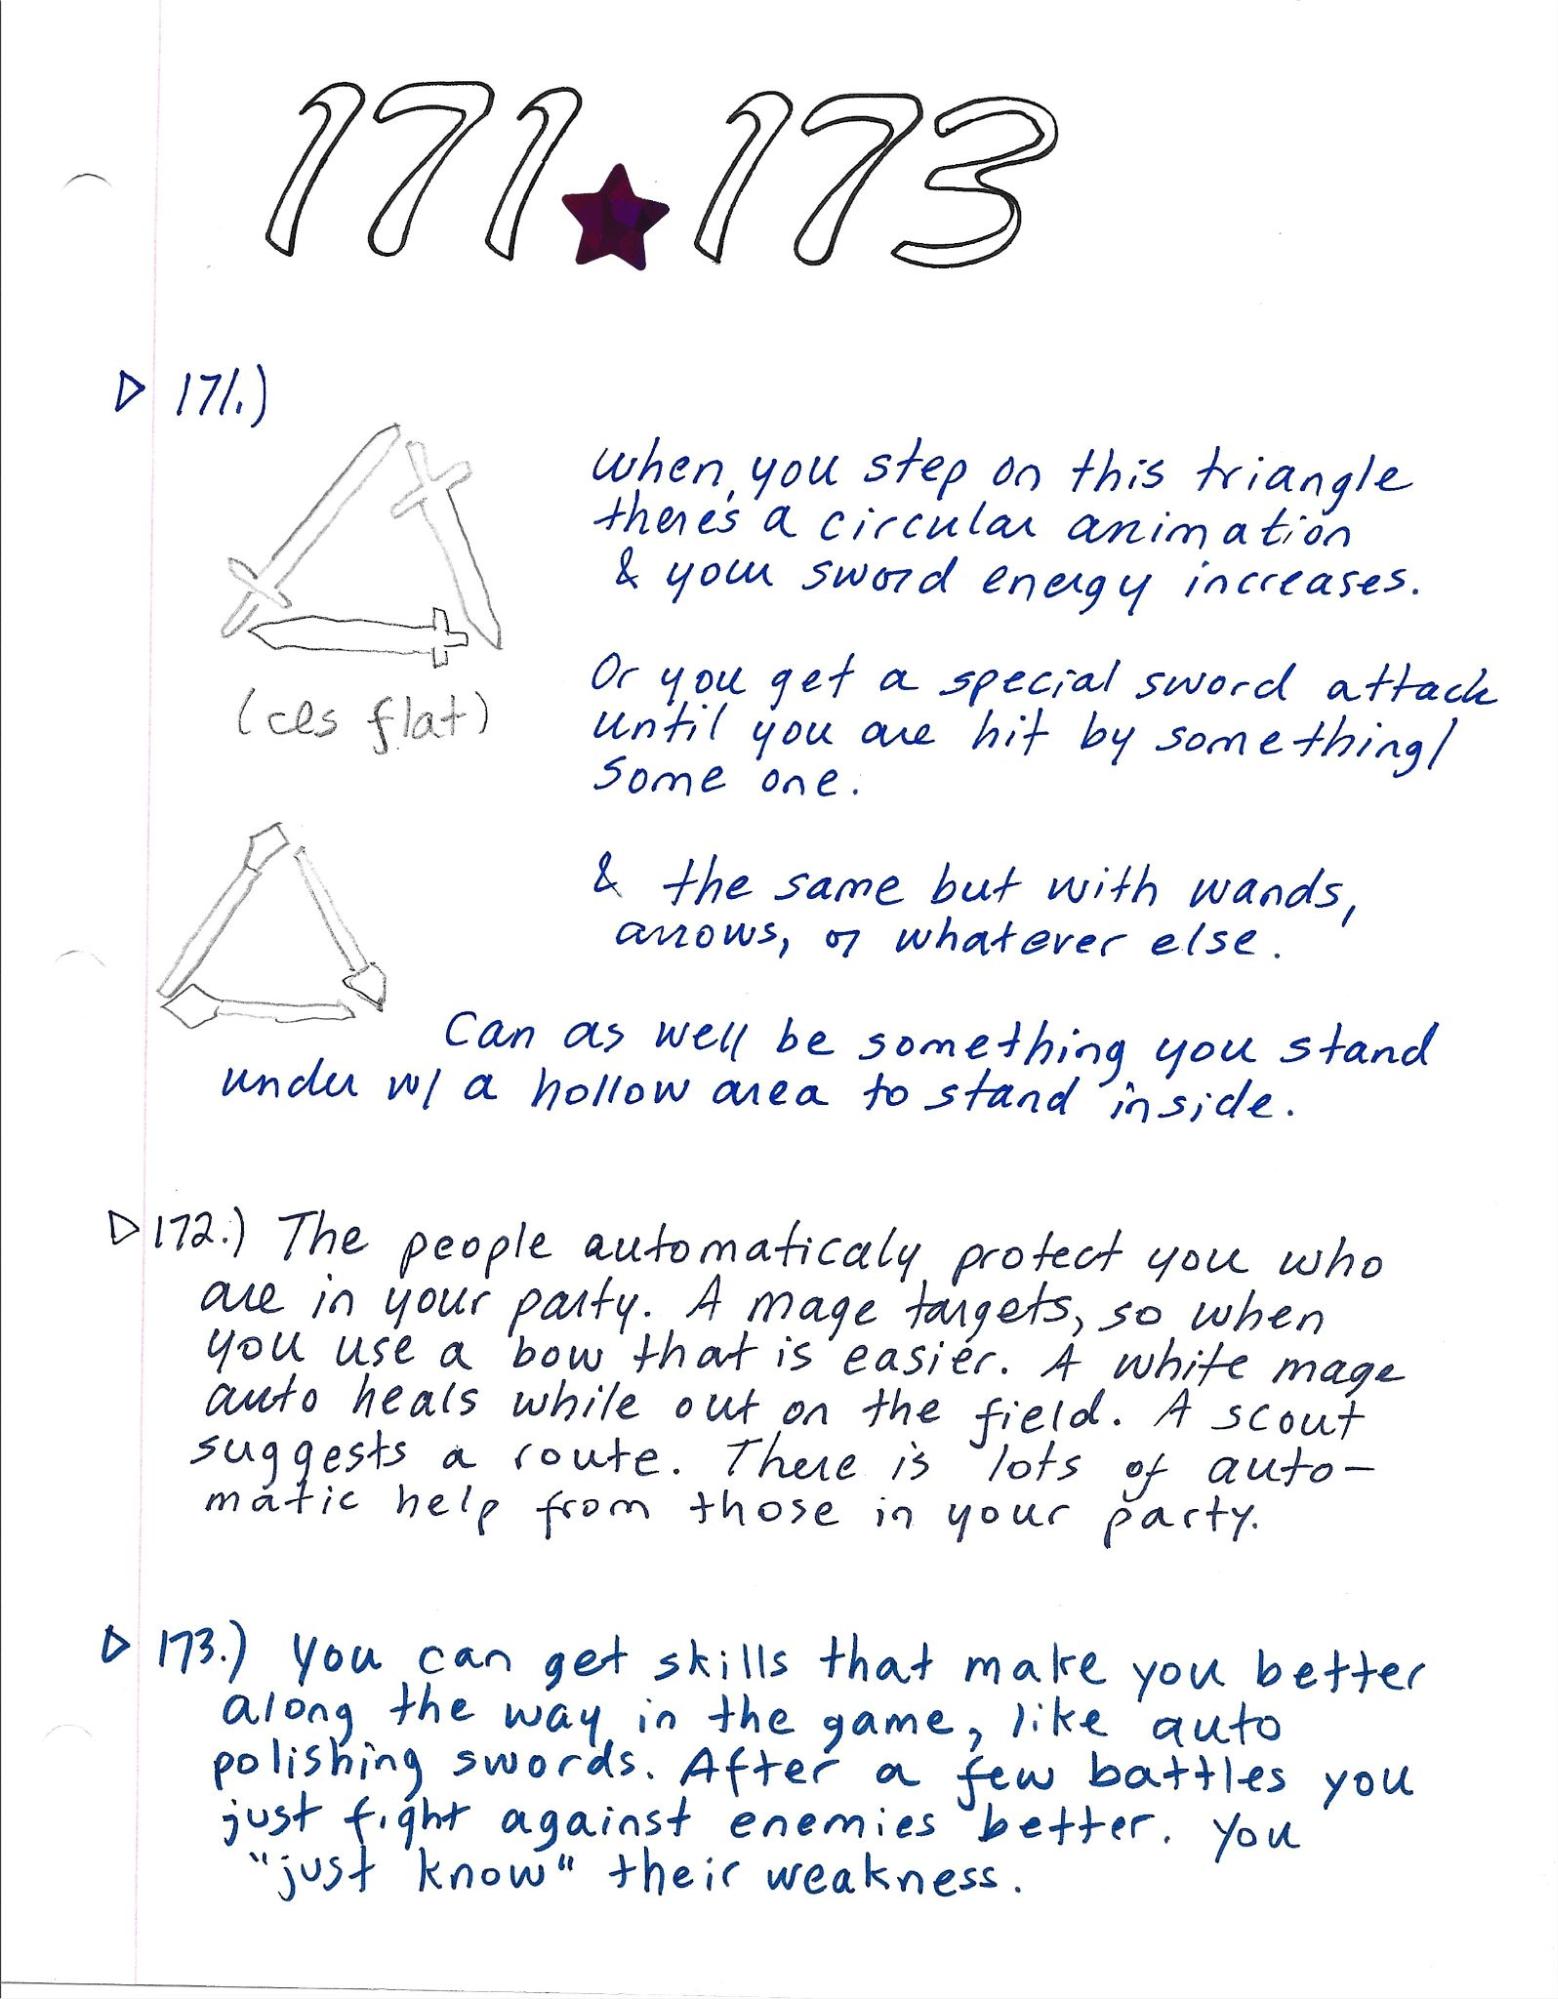 171★173
▷ 171.)
When you step on this triangle
there's a circular animation
& your sword energy increases.
(as flat)
Or you get a special sword attack
until you are hit by something/
some one.
& the same but with wands,
arrows, or whatever else.
Can as well be something you stand
under w/ a hollow area to stand inside.
▷ 172.) The people automaticaly protect you who
are in your party. A mage targets, so when
you use a bow that is easier. A white mage
auto heals while out on the field. A scout
suggests a route. There is lots of auto-
matic help from those in your party.
▷ 173.) You can get skills that make you better
along the way in the game, like auto
polishing swords. After a few battles you
just fight against enemies better. You
"just know" their weakness.